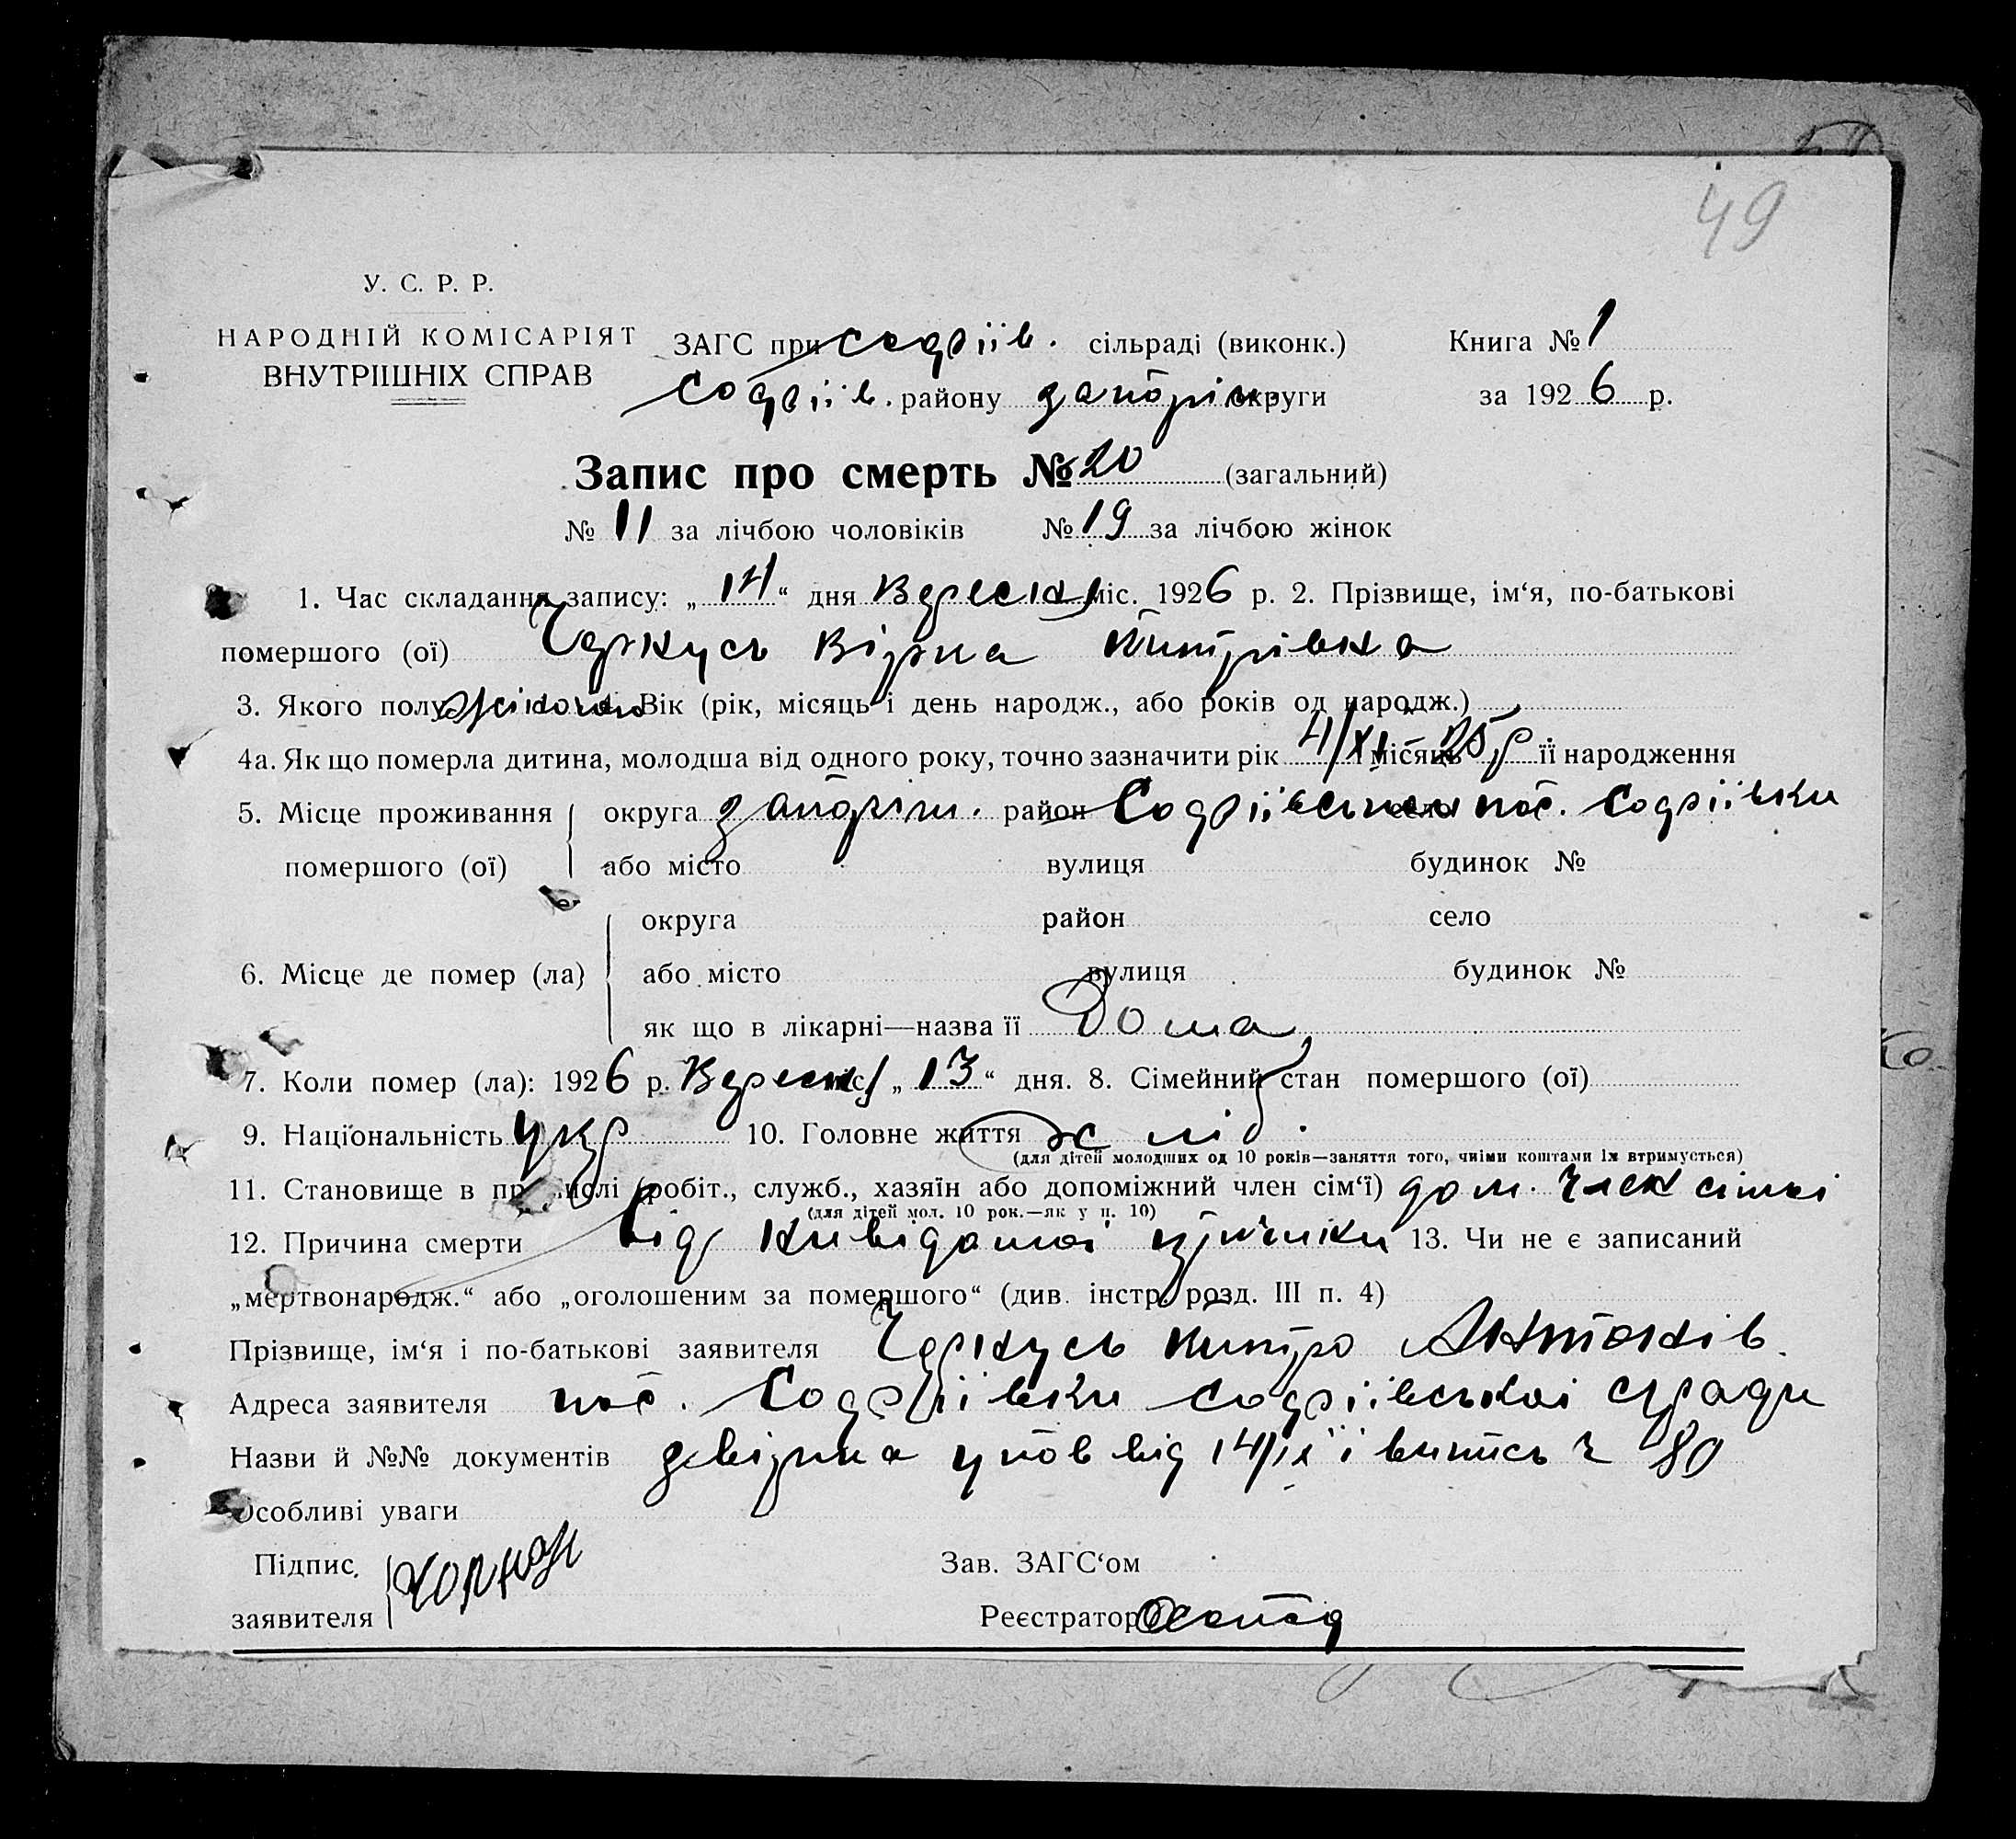 49
У. С. Р. Р.
НАРОДНІЙ КОМІСАРІЯТ
ВНУТРІШНІХ СПРАВ
ЗАГС при Софіїв. сільраді (виконк.)
Книга № 1
Софіїв. району Запоріж. округи
за 1926 р.
Запис про смерть № 20 (загальний)
№ 11 за лічбою чоловіків № 19 за лічбою жінок
1. Час складання запису: „14“ дня Вересня міс. 1926 р. 2. Прізвище, ім‘я, по-батькові
помершого (ої) Віра
3. Якого полу жіночого Вік (рік, місяць і день народж., або років од народж.)
4а. Як що померла дитина, молодша від одного року, точно зазначити рік 4/XI місяць 25 р її народження
5. Місце проживання помершого (ої) округа Запоріж. район Софіївський село пос. Софіївки
або місто вулиця будинок №
6. Місце де помер (ла) округа район село
або місто вулиця будинок №
як що в лікарні—назва її Дома
7. Коли помер (ла): 1926 р. Вересня міс. „13“ дня. 8. Сімейний стан помершого (ої)
9. Національність Укр 10. Головне життя хліб.
(для дітей молодших од 10 років—заняття того, чиїми коштами їх втримується)
11. Становище в промислі (робіт., служб., хазяїн або допоміжний член сім‘ї) доп. член сімї
(для дітей мол. 10 рок.—як у п. 10)
12. Причина смерти Від невідомої причини 13. Чи не є записаний
„мертвонародж.“ або „оголошеним за помершого“ (див. інстр. розд. III п. 4)
Прізвище, ім‘я і по-батькові заявителя Антонів.
Адреса заявителя пос. Софіївки Софіївської с/ради
Назви й №№ документів довідка упов від 14/IX і випись ч 80
Особливі уваги
Підпис заявителя
Зав. ЗАГС‘ом
Реєстратор